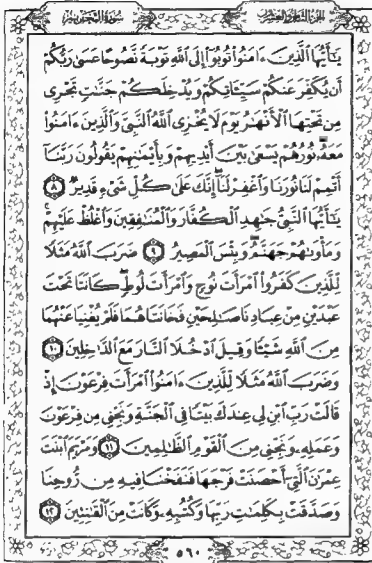 الجزء الثامن والعشرون سورة التحريم
يَٰٓأَيُّهَا ٱلَّذِينَ ءَامَنُوا۟ تُوبُوٓا۟ إِلَى ٱللَّهِ تَوْبَةً نَّصُوحًا عَسَىٰ رَبُّكُمْ
أَن يُكَفِّرَ عَنكُمْ سَيِّـَٔاتِكُمْ وَيُدْخِلَكُمْ جَنَّٰتٍ تَجْرِى
مِن تَحْتِهَا ٱلْأَنْهَٰرُ يَوْمَ لَا يُخْزِى ٱللَّهُ ٱلنَّبِىَّ وَٱلَّذِينَ ءَامَنُوا۟
مَعَهُۥ نُورُهُمْ يَسْعَىٰ بَيْنَ أَيْدِيهِمْ وَبِأَيْمَٰنِهِمْ يَقُولُونَ رَبَّنَآ
أَتْمِمْ لَنَا نُورَنَا وَٱغْفِرْ لَنَآ إِنَّكَ عَلَىٰ كُلِّ شَىْءٍ قَدِيرٌ ٨
يَٰٓأَيُّهَا ٱلنَّبِىُّ جَٰهِدِ ٱلْكُفَّارَ وَٱلْمُنَٰفِقِينَ وَٱغْلُظْ عَلَيْهِمْ
وَمَأْوَىٰهُمْ جَهَنَّمُ وَبِئْسَ ٱلْمَصِيرُ ٩ ضَرَبَ ٱللَّهُ مَثَلًا
لِّلَّذِينَ كَفَرُوا۟ ٱمْرَأَتَ نُوحٍ وَٱمْرَأَتَ لُوطٍ كَانَتَا تَحْتَ
عَبْدَيْنِ مِنْ عِبَادِنَا صَٰلِحَيْنِ فَخَانَتَاهُمَا فَلَمْ يُغْنِيَا عَنْهُمَا
مِنَ ٱللَّهِ شَيْـًٔا وَقِيلَ ٱدْخُلَا ٱلنَّارَ مَعَ ٱلدَّٰخِلِينَ ١٠
وَضَرَبَ ٱللَّهُ مَثَلًا لِّلَّذِينَ ءَامَنُوا۟ ٱمْرَأَتَ فِرْعَوْنَ إِذْ
قَالَتْ رَبِّ ٱبْنِ لِى عِندَكَ بَيْتًا فِى ٱلْجَنَّةِ وَنَجِّنِى مِن فِرْعَوْنَ
وَعَمَلِهِۦ وَنَجِّنِى مِنَ ٱلْقَوْمِ ٱلظَّٰلِمِينَ ١١ وَمَرْيَمَ ٱبْنَتَ
عِمْرَٰنَ ٱلَّتِىٓ أَحْصَنَتْ فَرْجَهَا فَنَفَخْنَا فِيهِ مِن رُّوحِنَا
وَصَدَّقَتْ بِكَلِمَٰتِ رَبِّهَا وَكُتُبِهِۦ وَكَانَتْ مِنَ ٱلْقَٰنِتِينَ ١٢
٥٦٠